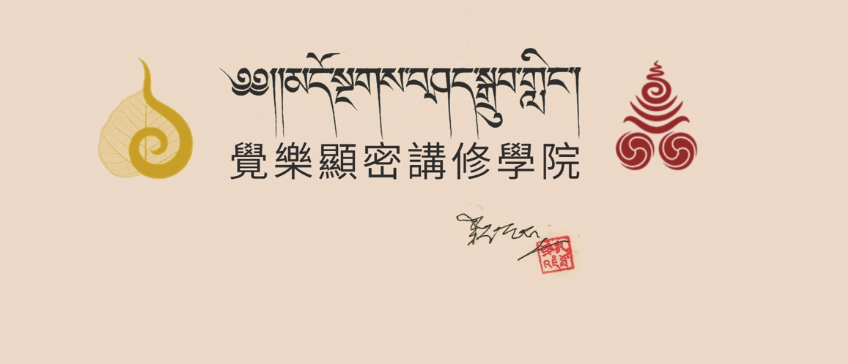 ༄༅།།མདོ་སྔགས་བཤད་སྒྲུབ་གླིང།
覺樂顯密講修學院